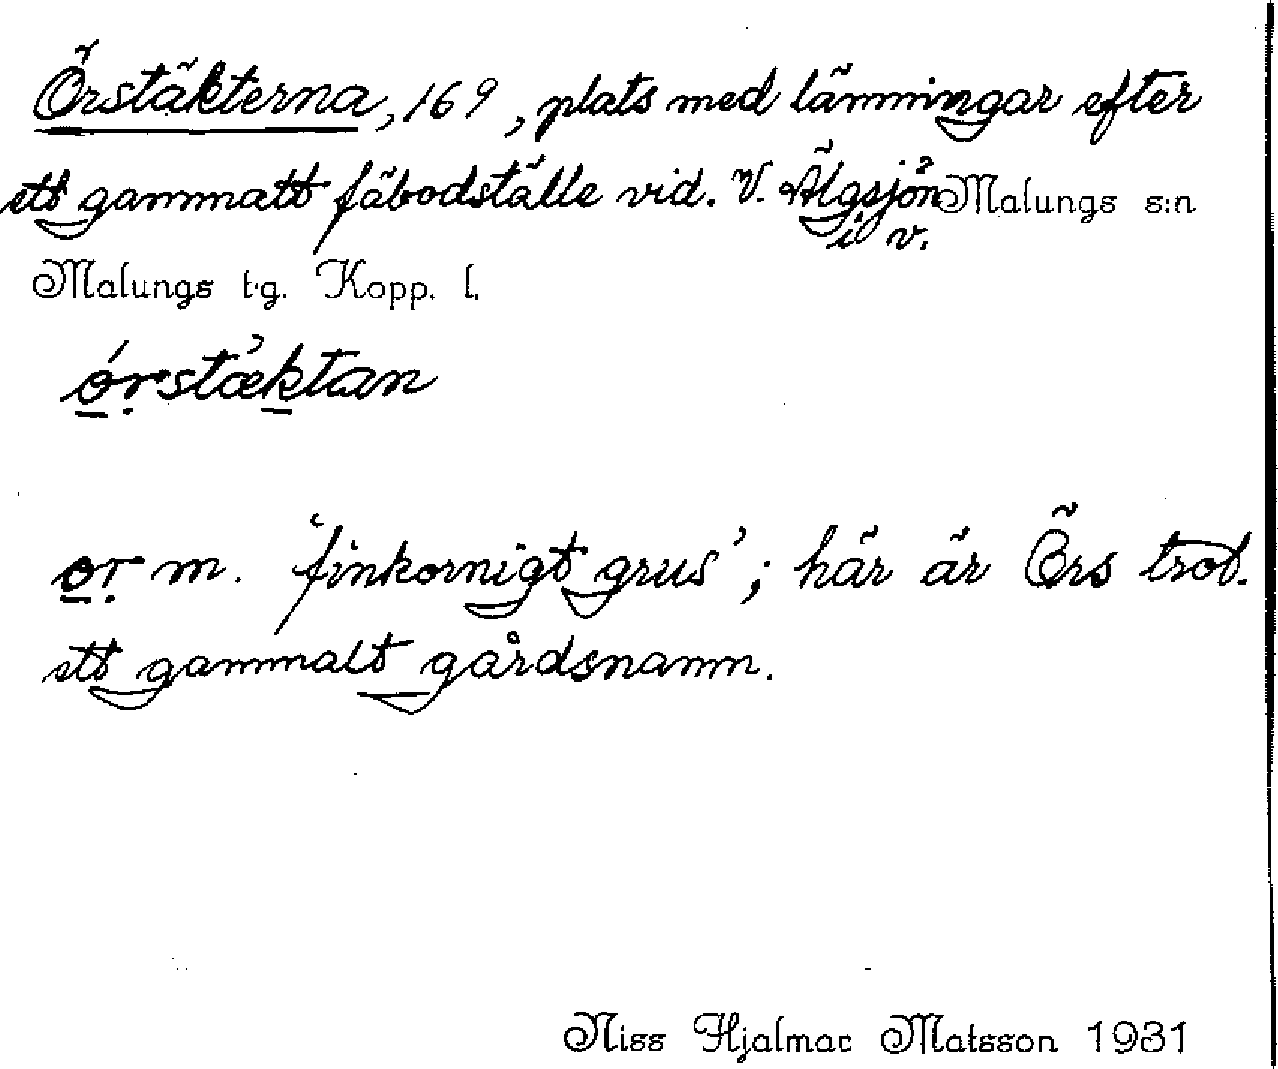 Örstäkterna, 169, plats med lämningar efter
ett gammalt fäbodställe vid. V. Älgsjön Malungs s:n
i v.
Malungs t.g. Kopp. l.
órstæktan
or m. 'finkornigt grus'; här är Örs trol.
ett gammalt gårdsnamn.
Niss Hjalmar Matsson 1931